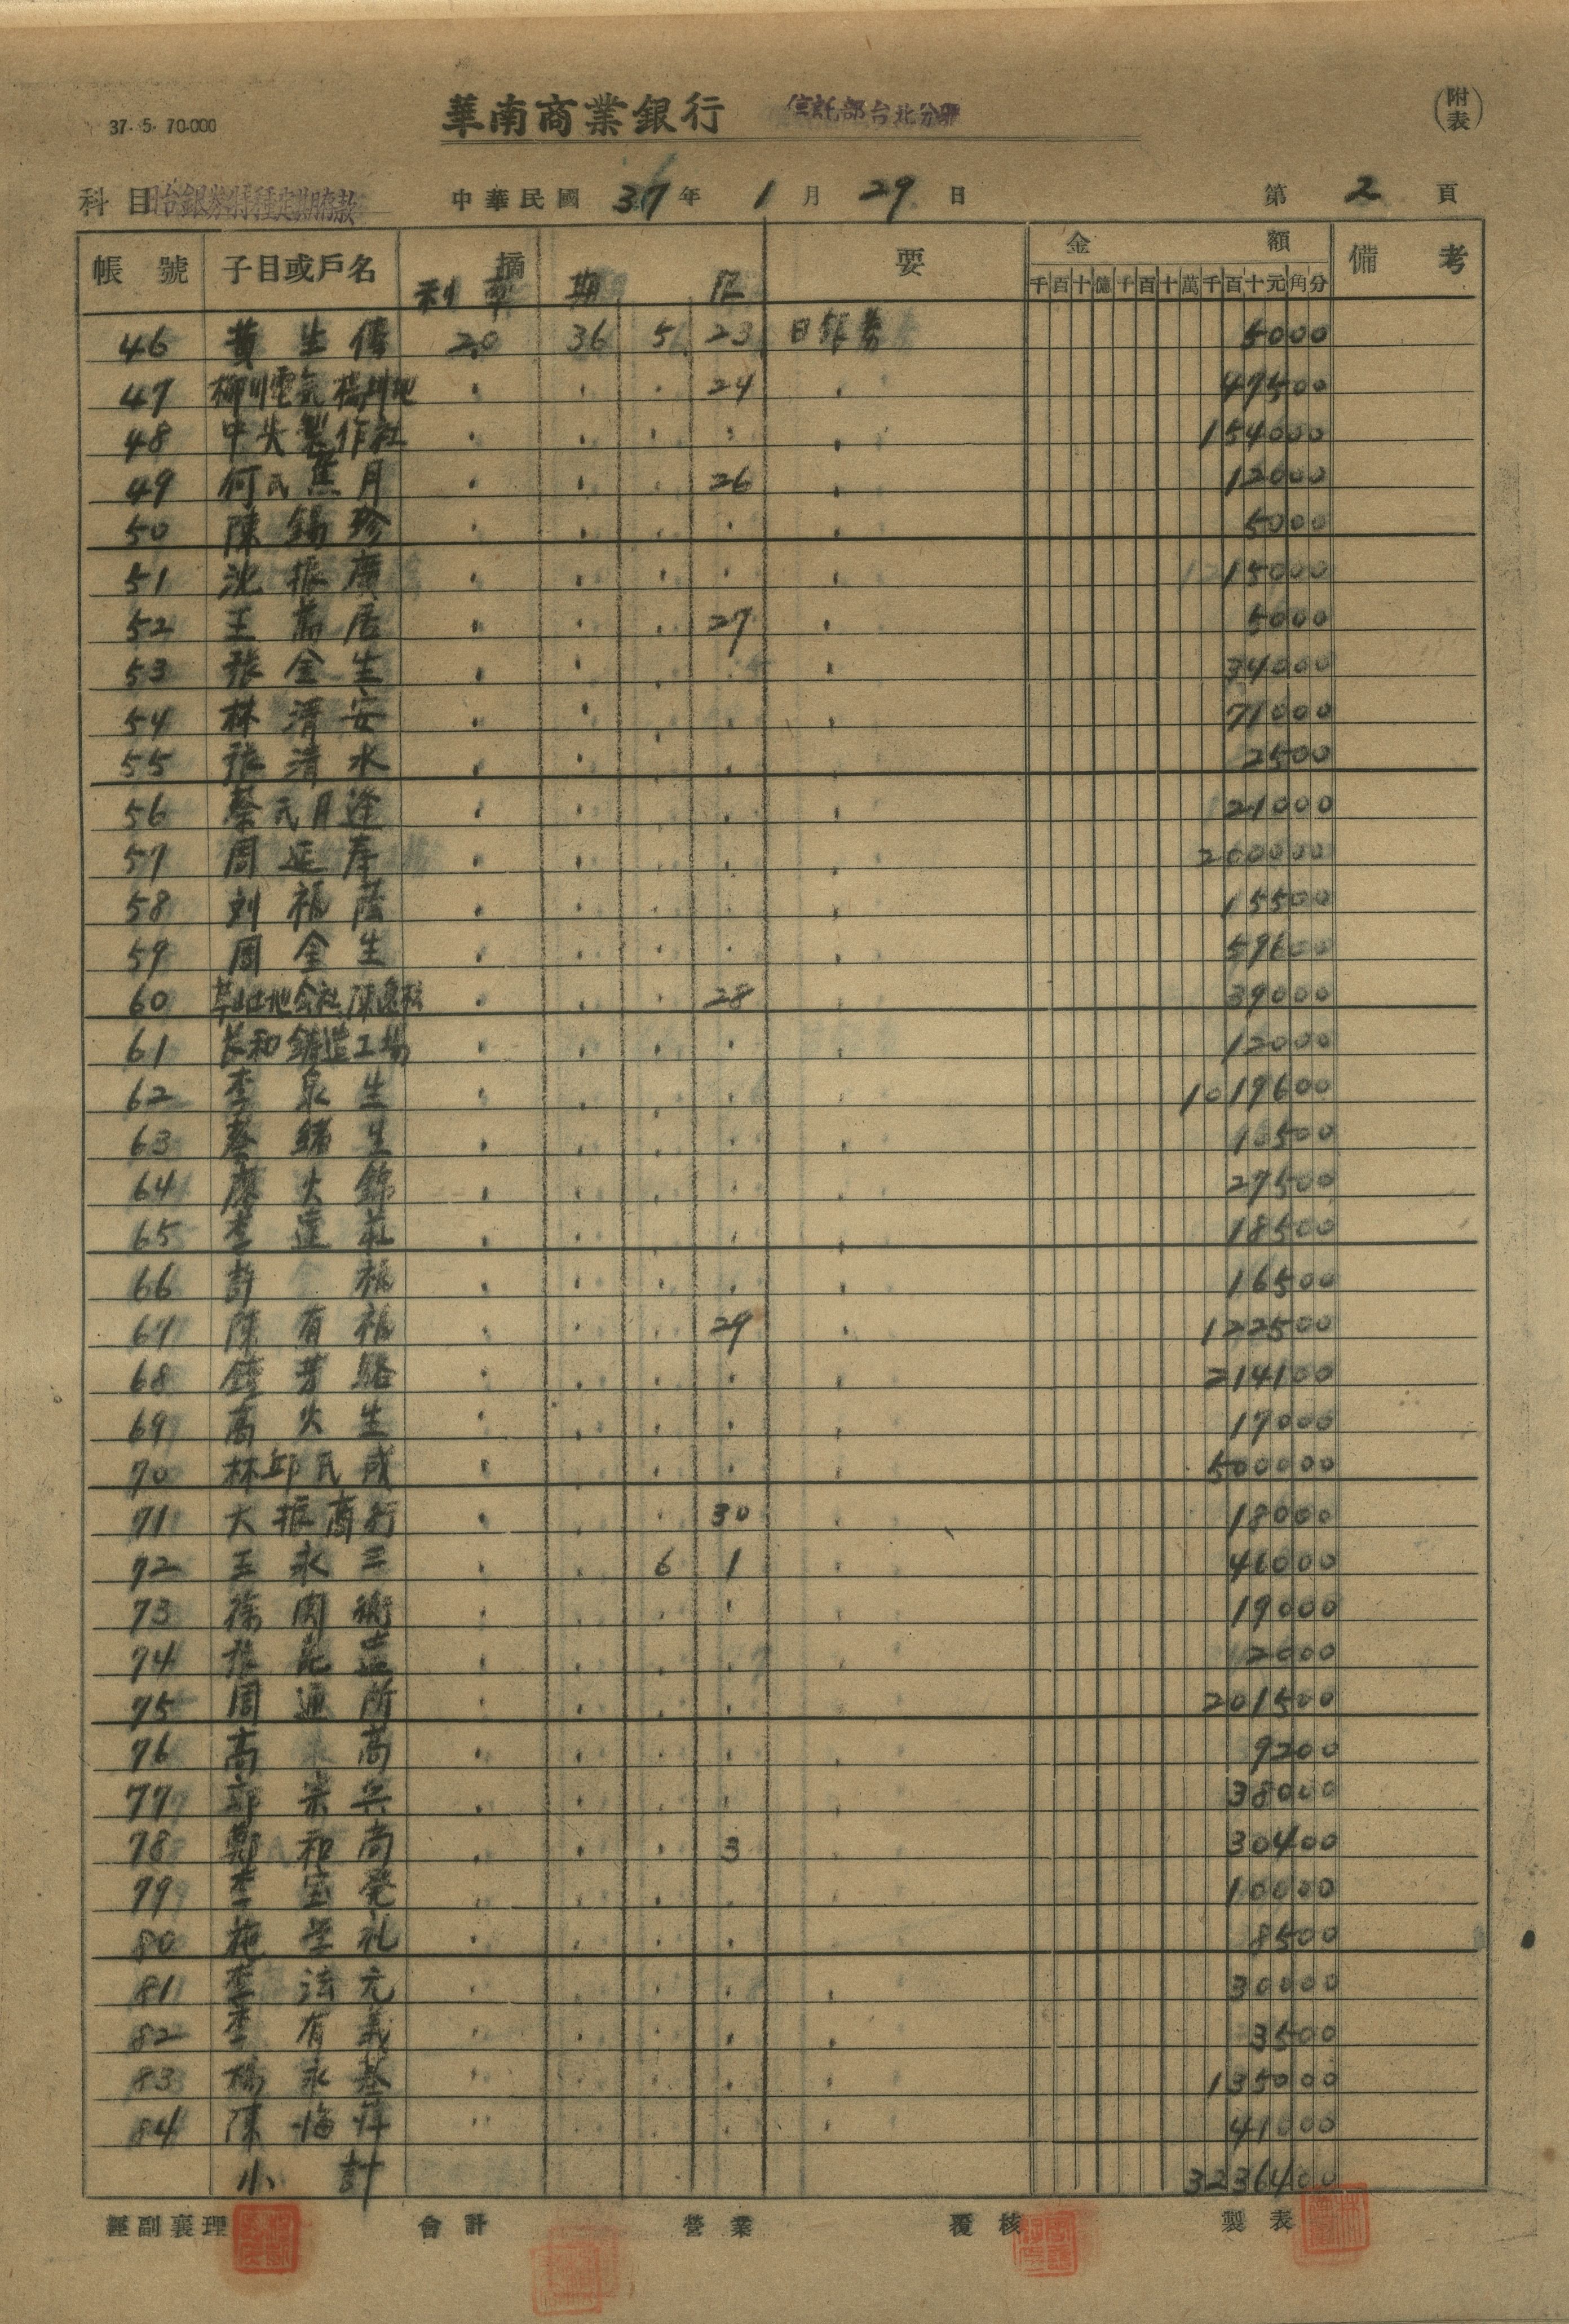 37. 5. 70.000
華南商業銀行 信託部台北分部
(附表)
科目 旧台銀券特種定期存款 中華民國 37 年 1 月 29 日 第 2 頁
帳號 子目或戶名 摘 要 金 額 備考
利率 期 限 千百十億千百十萬千百十元角分
46 黃生傳 2.0 36 5 23 日銀券 5000
47 柳川電氣 〃 〃 〃 24 〃 47500
48 中央製作社 〃 〃 〃 〃 〃 154000
49 何氏蕉月 〃 〃 〃 26 〃 12000
50 陳錫珍 〃 〃 〃 〃 〃 5000
51 沈振廣 〃 〃 〃 〃 〃 15000
52 王萬居 〃 〃 〃 27 〃 5000
53 張金生 〃 〃 〃 〃 〃 34000
54 林清安 〃 〃 〃 〃 〃 71000
55 張清水 〃 〃 〃 〃 〃 2500
56 蔡氏月逢 〃 〃 〃 〃 〃 21000
57 周延奉 〃 〃 〃 〃 〃 200000
58 刘福蔭 〃 〃 〃 〃 〃 15500
59 周金生 〃 〃 〃 〃 〃 59600
60 草山土地会社 〃 〃 〃 28 〃 39000
61 長和鋳造工場 〃 〃 〃 〃 〃 12000
62 李泉生 〃 〃 〃 〃 〃 1019600
63 蔡錦生 〃 〃 〃 〃 〃 10500
64 廖火錦 〃 〃 〃 〃 〃 27500
65 李蓮莊 〃 〃 〃 〃 〃 18500
66 許金福 〃 〃 〃 〃 〃 16500
67 陳有福 〃 〃 〃 29 〃 122500
68 鐘芳駱 〃 〃 〃 〃 〃 214100
69 高火生 〃 〃 〃 〃 〃 17000
70 林邱氏成 〃 〃 〃 〃 〃 500000
71 大振商行 〃 〃 〃 30 〃 18000
72 王永三 〃 〃 6 1 〃 46000
73 徐 〃 〃 〃 〃 〃 19000
74 張 〃 〃 〃 〃 〃 12000
75 周連所 〃 〃 〃 〃 〃 201500
76 高 高 〃 〃 〃 〃 〃 9200
77 郭宗兵 〃 〃 〃 〃 〃 38000
78 鄭和尚 〃 〃 〃 3 〃 30400
79 李室発 〃 〃 〃 〃 〃 10000
80 施 礼 〃 〃 〃 〃 〃 8500
81 李法元 〃 〃 〃 〃 〃 30000
82 李有義 〃 〃 〃 〃 〃 3500
83 楊永基 〃 〃 〃 〃 〃 135000
84 陳 〃 〃 〃 〃 〃 41000
小計 3236400
經副襄理 會計 營業 覆核 製表